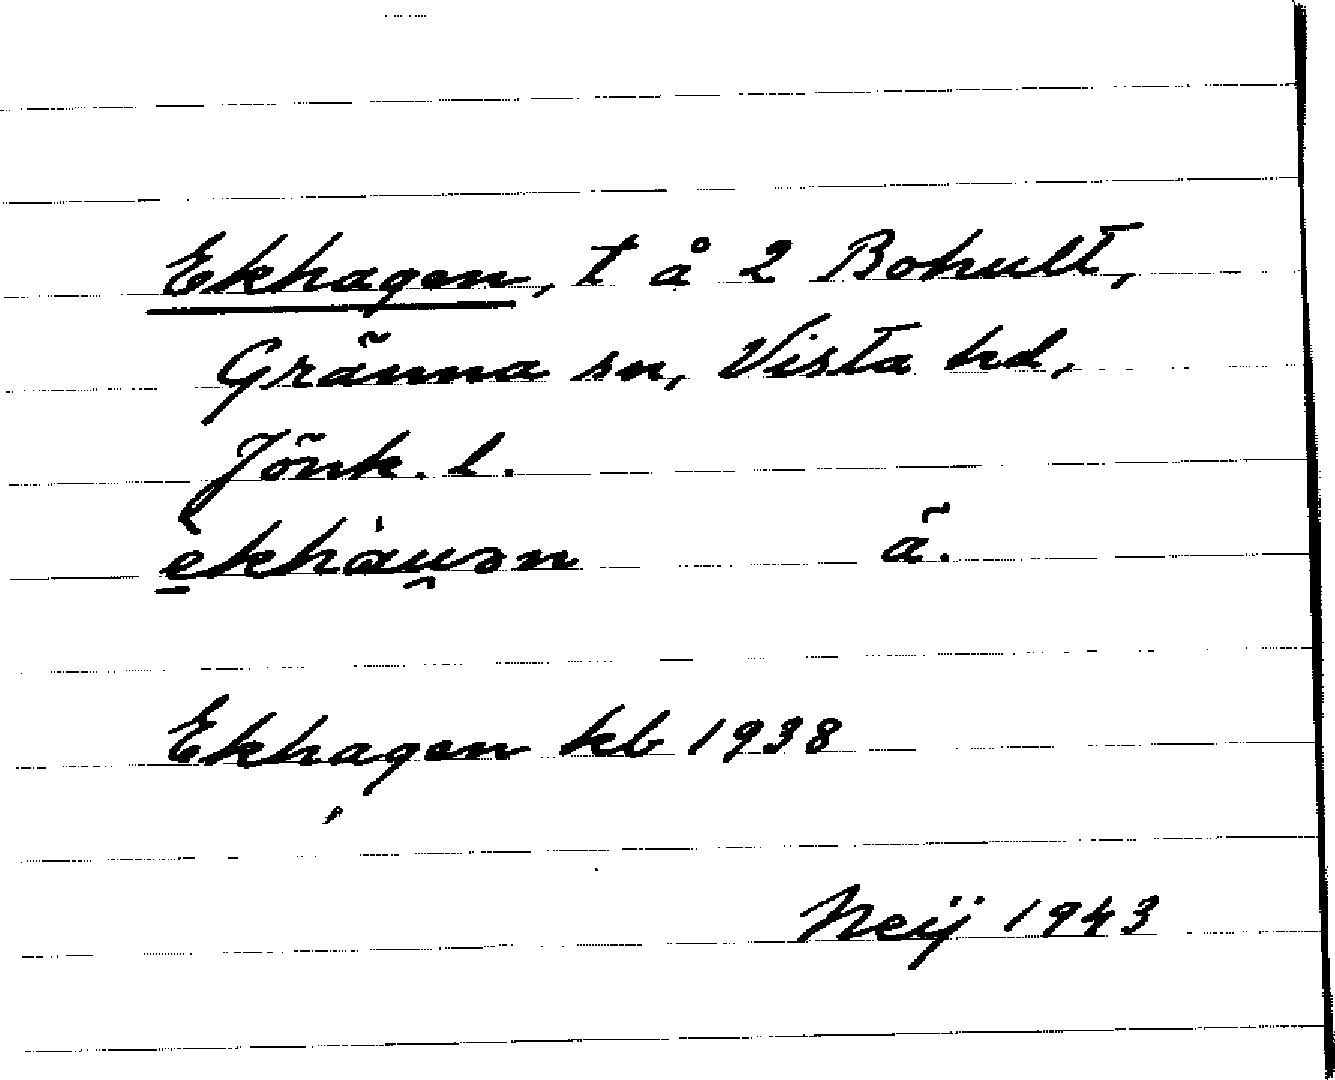 Ekhagen, t å 2 Bohult,
Gränna sn, Vista hd,
Jönk. l.
e̲khàu̯ən ä.
Ekhagen kb 1938
Neij 1943